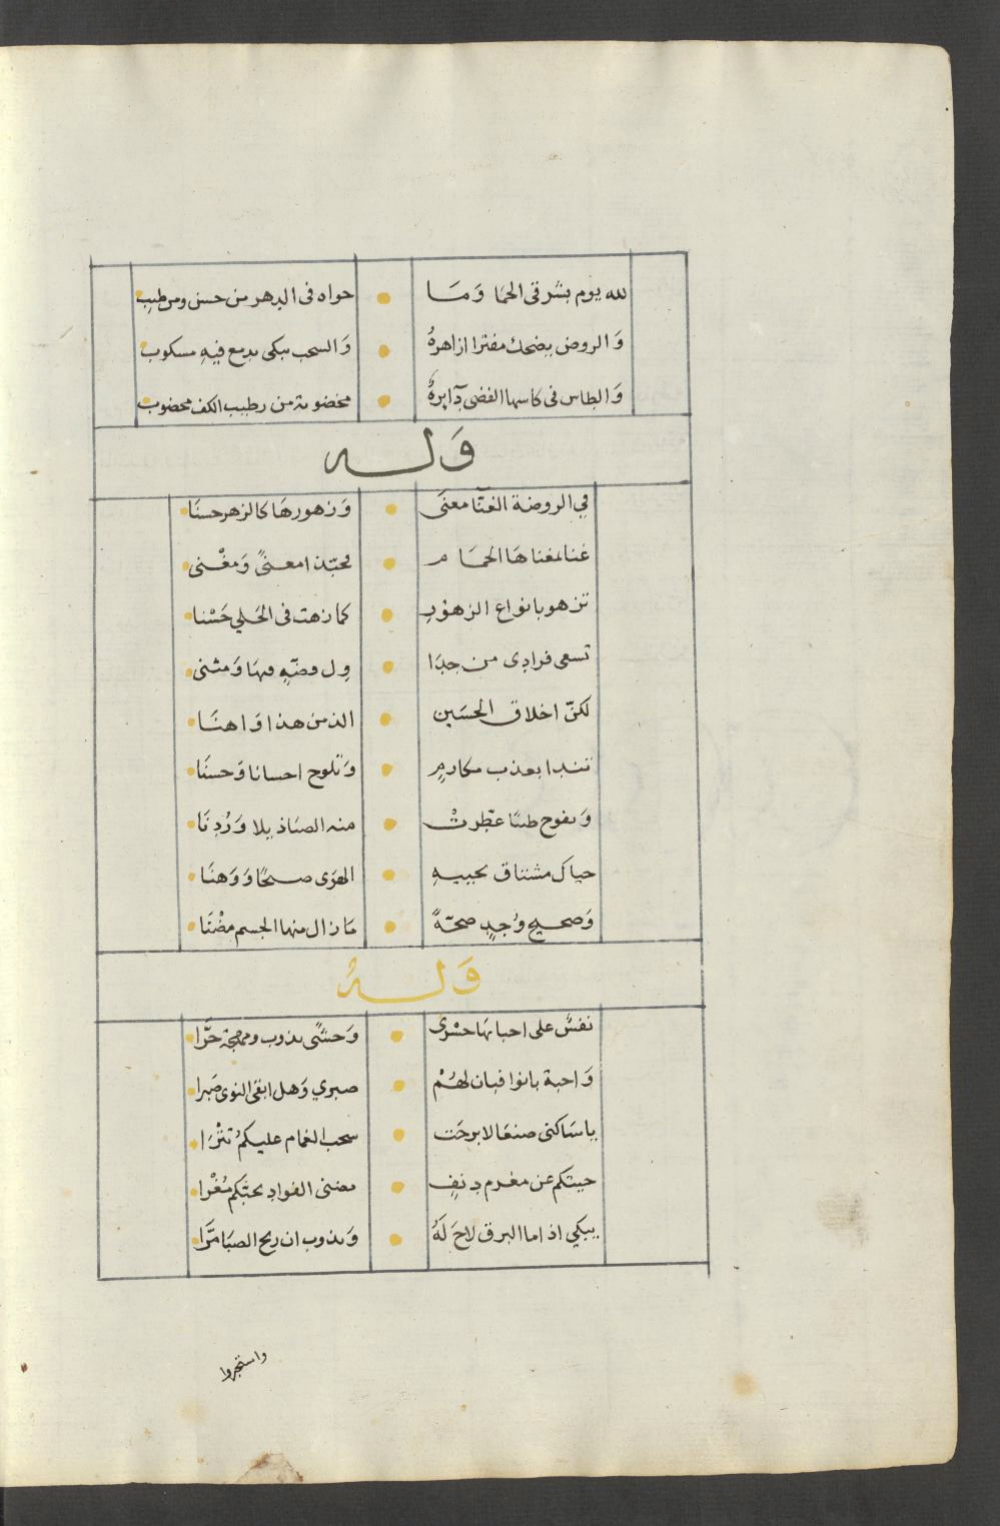 لله يوم بشرقى الحمَا وَمَا • حواه فى الدهر من حسن ومن طيب
وَالروض يضحك مفترا ازاهرهُ • وَالسحب تبكى بدمع فيهِ مسكوب
وَالطاس فى كاسها الفضى دآيرةٌ • مخضوبة من رطيب الكف مخضوب
وَله
في الروضة الغنّا معنَى • وَزهورهَا كالزهر حسنَا
غنا بمغناهَا الحمَام • فحبّذا معنىً وَمغْنى
تزهو بانواع الزهوْرِ • كما زهت فى الحَلي حَسْنا
تسعى فرادى من جدَا • ول فضّهٍ فيهَا وَمثنى
لكنّ اخلاق الحسَين • الذ من هذا وَاهنَا
تندا بعذب مكارمٍ • وَتلوح احسانا وَحسنَا
وَيفوح طيبًا عطّرتْ • منه الصبَا ذيلا وَرُدنَا
حياك مشتاق بحبيبهِ • الهوَى صبحًا وَوَهنَا
وَصحيح وُجدٍ صحّةً • مَا زال منها الجسم مضْنَا
وَلهُ
نفسٌ على احبابهَا حسْرى • وَحشًى يذوب ومهجة حَرّا
وَاحبة بانوا فبان لهُمْ • صبري وَهل ابقى النوى صَبرا
ياسَاكنى صنعَا لا برحَت • سحب الغمام عليكمُ تتْرَا
حيتكم عن مغرم دنفٍ • مضنى الفوادِ بحبّكم مُغْرا
يبكي اذا ما البرق لاحَ لَهُ • وَيذوب ان ريح الصبَا مَرَّا
واستجروا